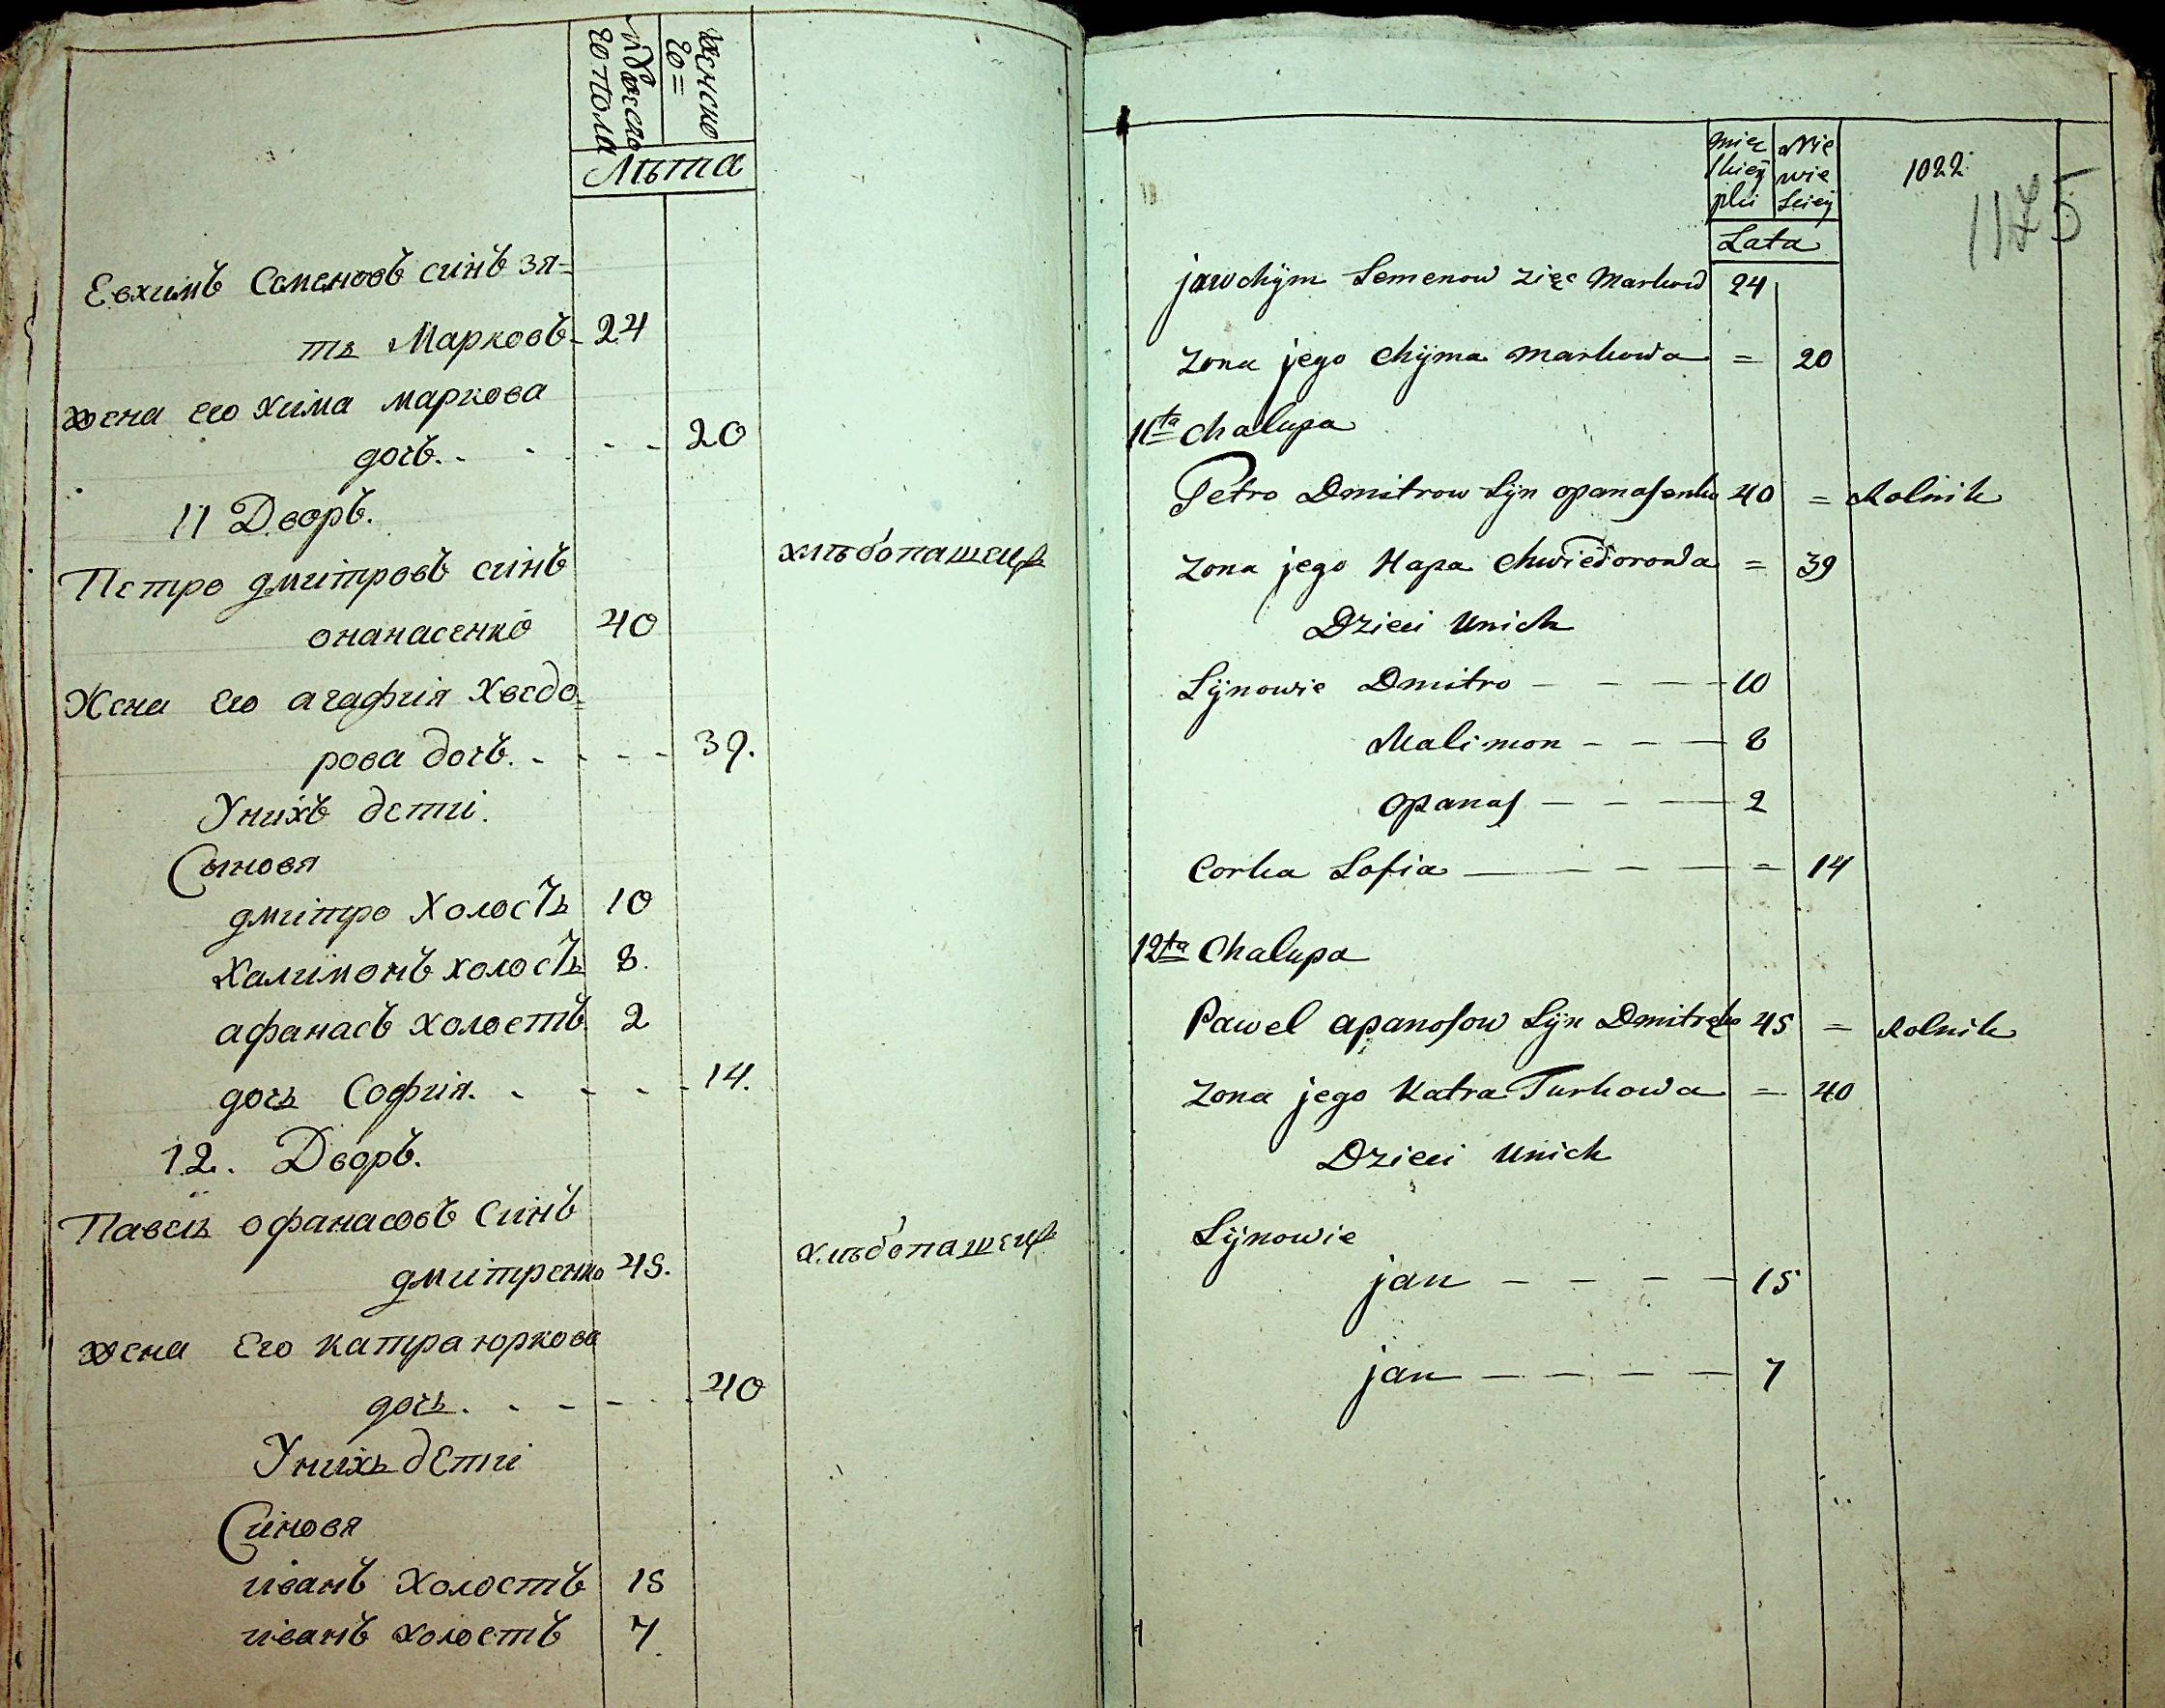 мужеско
го пола
женско
го=
Лѣта
Евхимъ Семеновъ синъ зя=
ть Марковъ - 24
жена его хима маркова
дочъ. - - - - 20
11 Дворъ.
Петро дмитровъ синъ
хлѣбопашецъ
опанасенко 40
Жена его агафия Хведо=
рова дочъ. - - - - 39.
Унихъ дети.
Сыновя
дмитро Холостъ 10
Халимонъ холостъ 8.
афанасъ холостъ 2
дочь София. - - - - 14.
12. Дворъ.
Павелъ офанасовъ Синъ
дмитренко 45.
хлѣбопашецъ
жена Его катра юркова
дочь. - - - - 40
Унихъ дЕти
Синовя
иванъ Холостъ 15
иванъ холостъ 7.
męz
skiey
płci
Nie
wie
sciey
1022
1175
Lata
jawchÿm Semenow zięc Markow 24
zona jego Chÿma Markowa = 20
11ta Chalupa
Petro Dmitrow Sÿn opanasenko 40 = Rolnik
zona jego Hapa Chwiedorowa = 39
Dzieci Unich
Sÿnowie Dmitro - - - - 10
Malimon - - - 8
Opanas - - - 2
Corka Sofia - - - - = 14
12ta Chalupa
Pawel apanasow Sÿn Dmitręko 45 = Rolnik
zona jego Katra Jurkowa = 40
Dzieci Unich
Sÿnowie
jan - - - - 15
jan - - - - 7